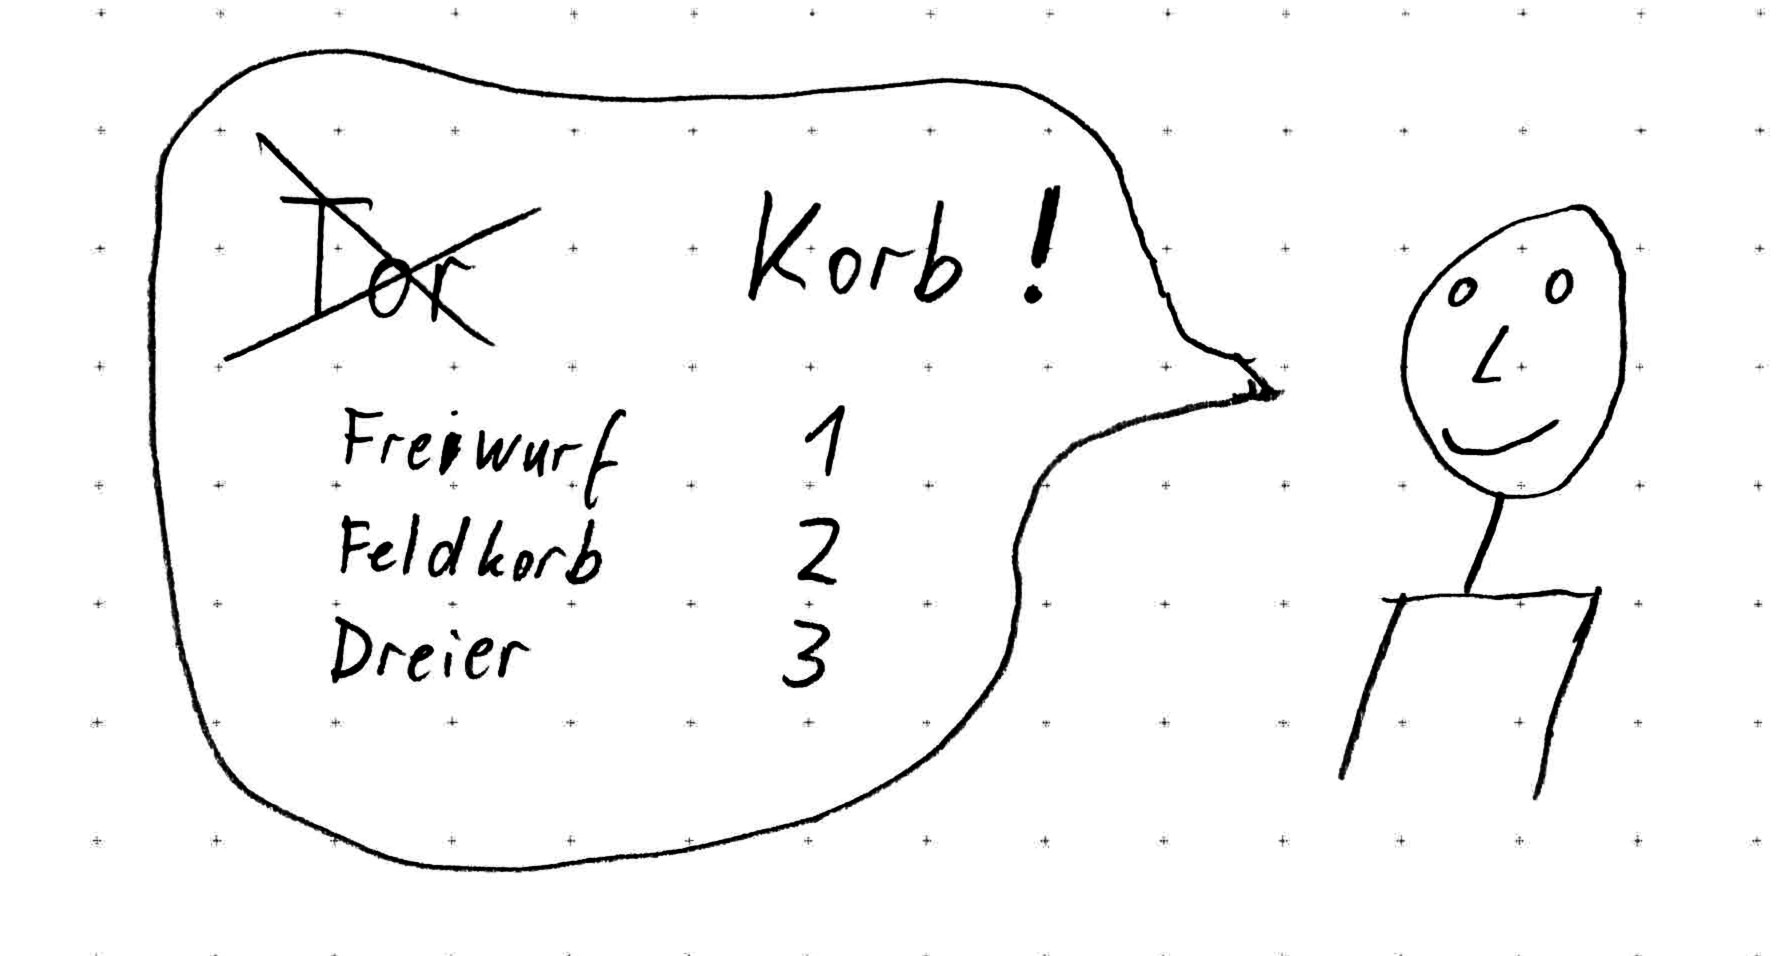 Tor Korb!
Freiwurf 1
Feldkorb 2
Dreier 3